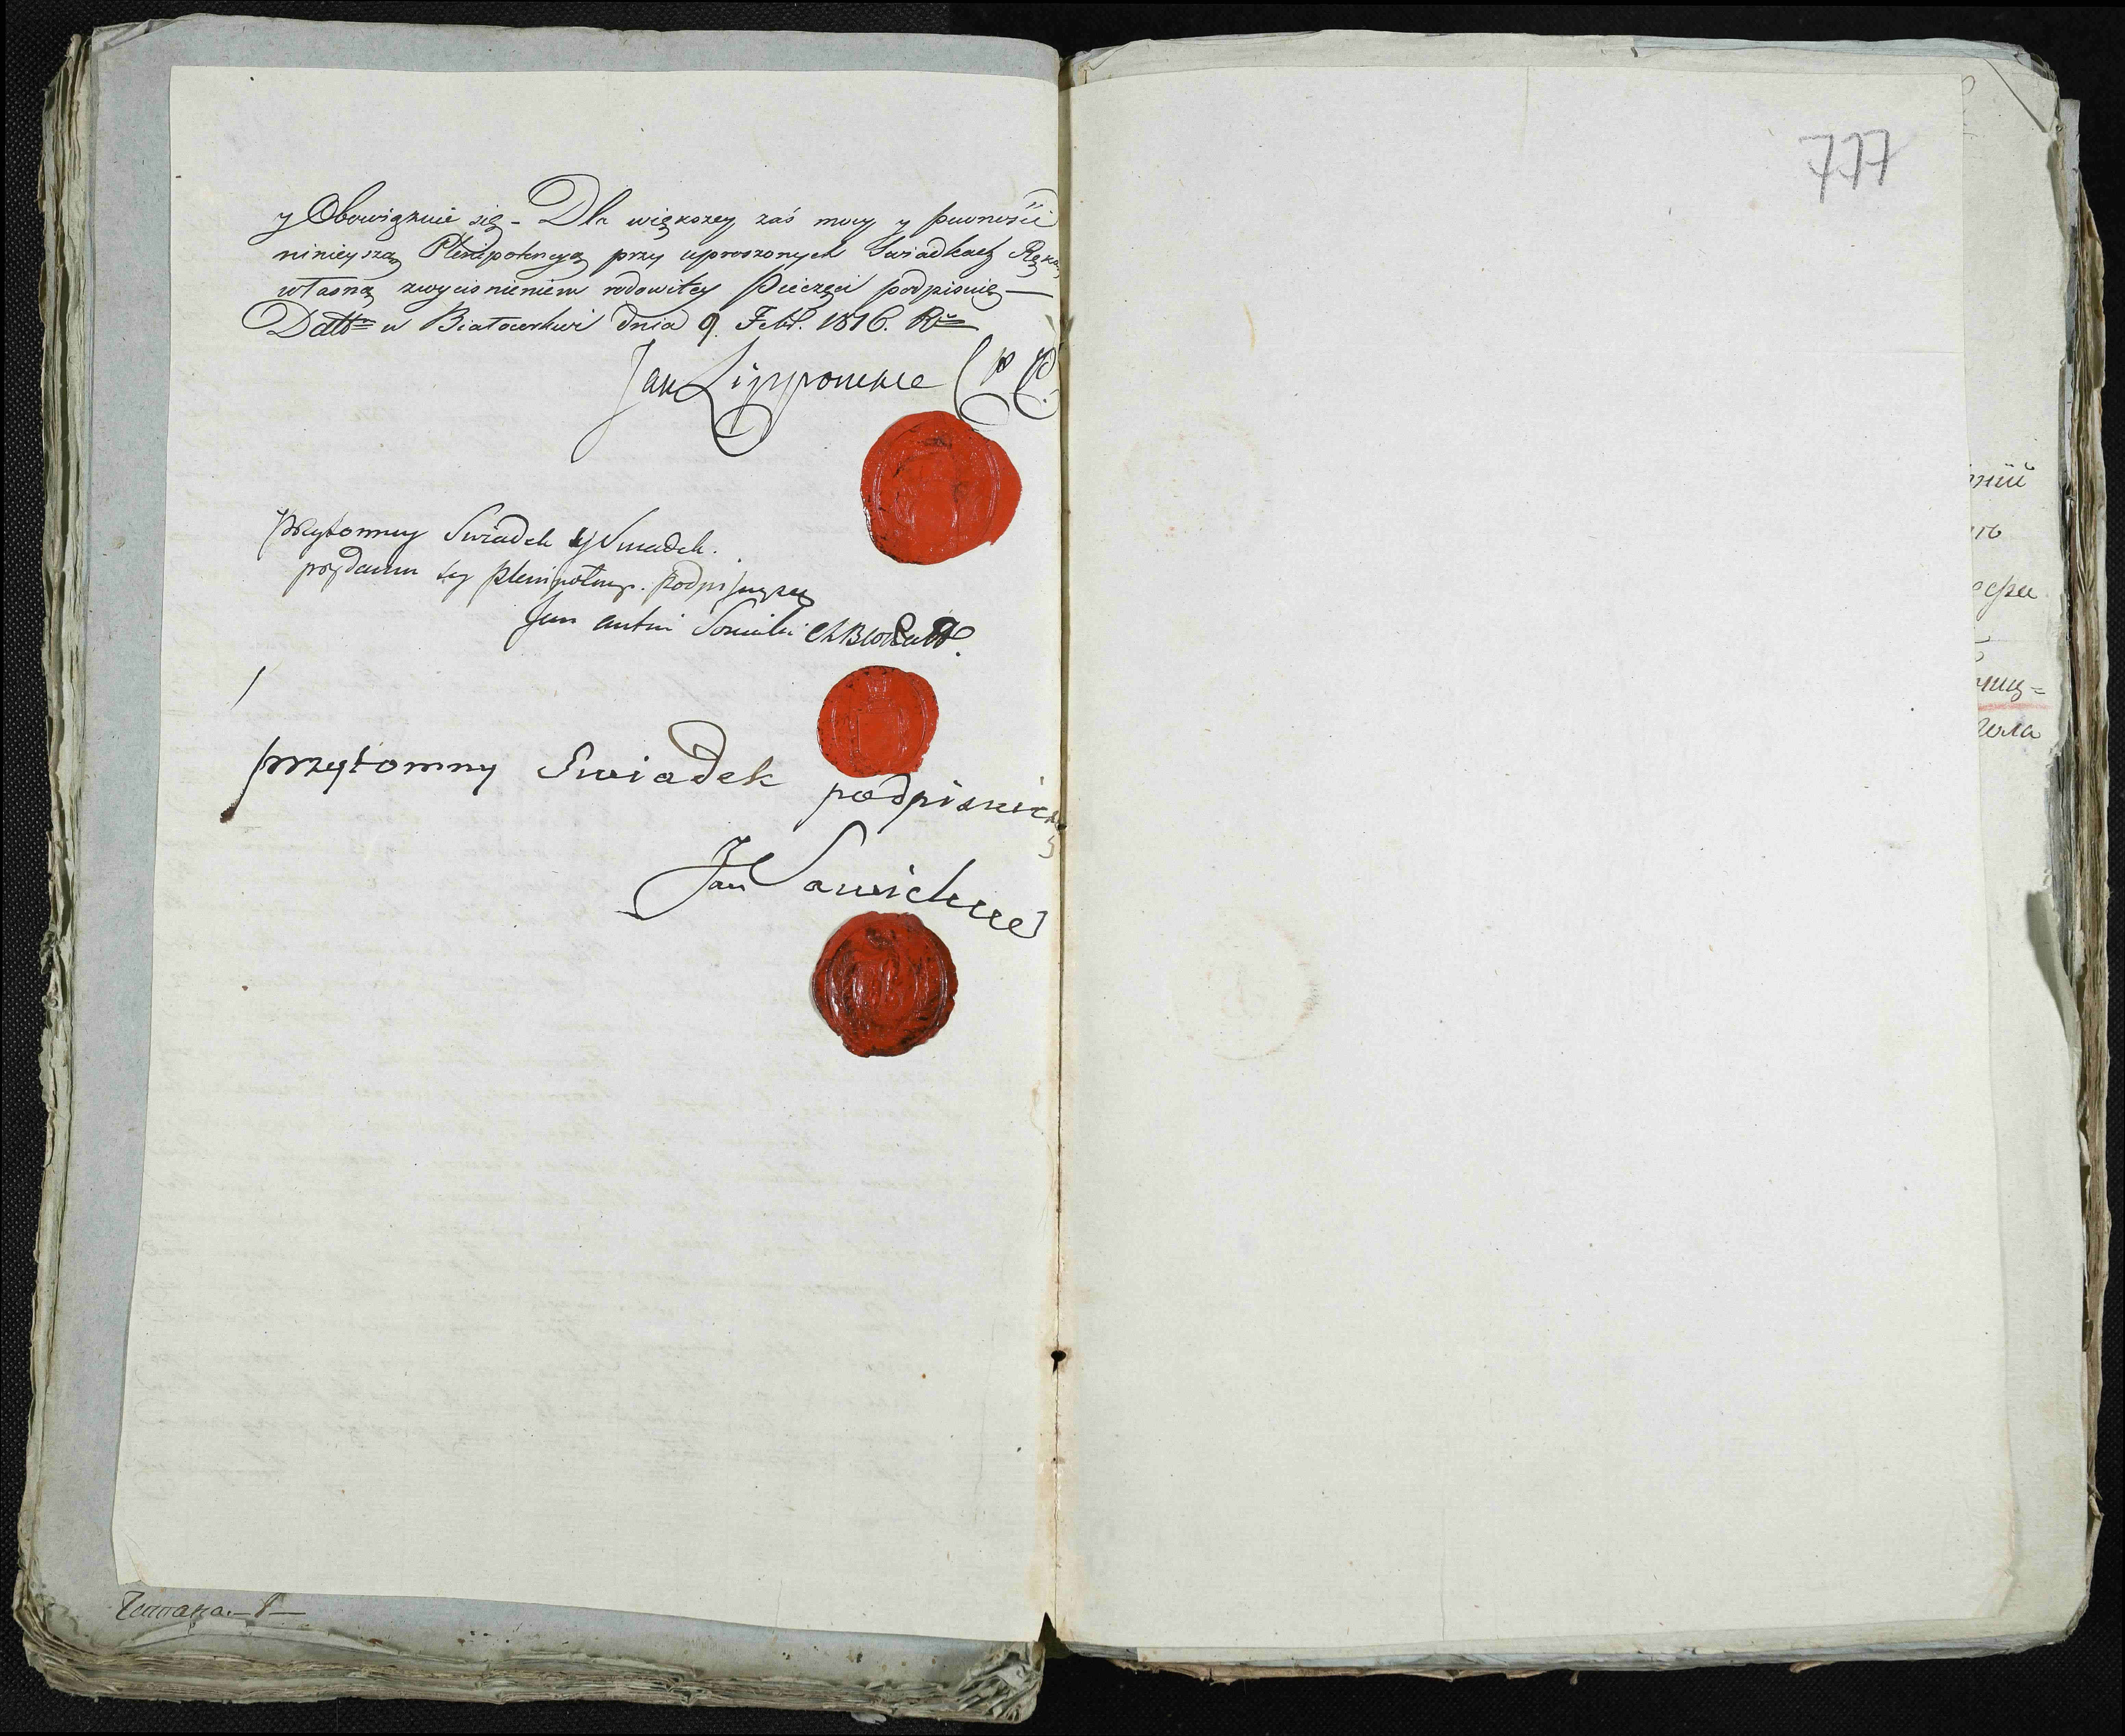 y Obowiązuie się - Dla większey zaś mocy y pewności
ninieyszą Plenipotencyą przy uproszonych Swiadkach Ręką
własną zwycisnieniem rodowitey Pieczęci podpisuię —
Datt w Białocerkwi dnia 9. Febr. 1816. R
Jan Lipponckie
przytomny Swiadek y
przy daniu tey plenipotency. podpisuię
Jan
przytomny Swiadek podpisuię
Jan Sawickie
777